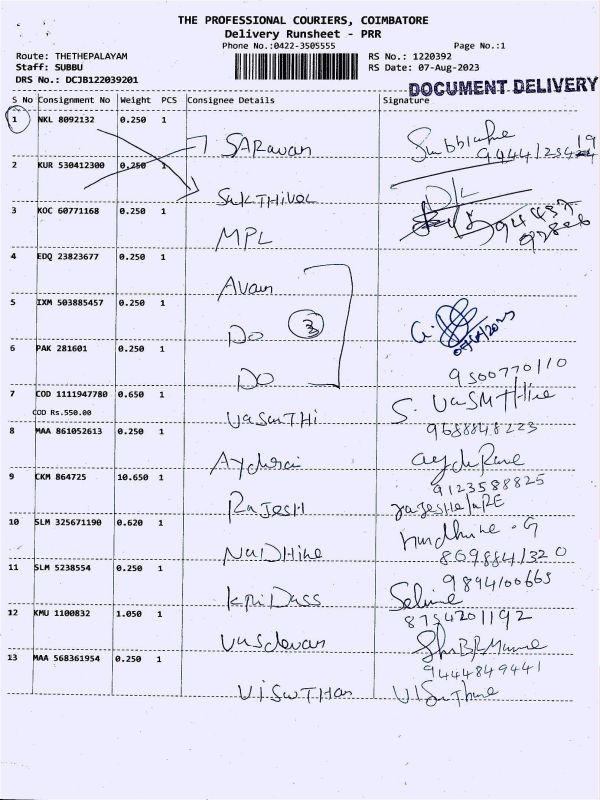 THE PROFESSIONAL COURIERS, COIMBATORE
Delivery Runsheet - PRR
Phone No.:0422-3505555 Page No.:1
Route: THETHEPALAYAM RS No.: 1220392
Staff: SUBBU RS Date: 07-Aug-2023
DRS No.: DCJB122039201
DOCUMENT DELIVERY
S No Consignment No Weight PCS Consignee Details Signature
1 NKL 8092132 0.250 1
SARavan
2 KUR 530412300 0.250 1
SAKTHIVEL
3 KOC 60771168 0.250 1
MPL
4 EDQ 23823677 0.250 1
Avain
5 IXM 503885457 0.250 1
DO 3
6 PAK 281601 0.250 1
DO 9500770110
7 COD 1111947780 0.650 1
COD Rs.550.00
VasanTHi 9688848223
8 MAA 861052613 0.250 1
9123588825
9 CKM 864725 10.650 1
RAJESH
10 SLM 325671190 0.620 1
NaDHine 8698841320
11 SLM 5238554 0.250 1 9894100665
KRiDass
12 KMU 1100832 1.050 1 8754201192
Vasdevan
13 MAA 568361954 0.250 1 9444849441
ViSwTHan